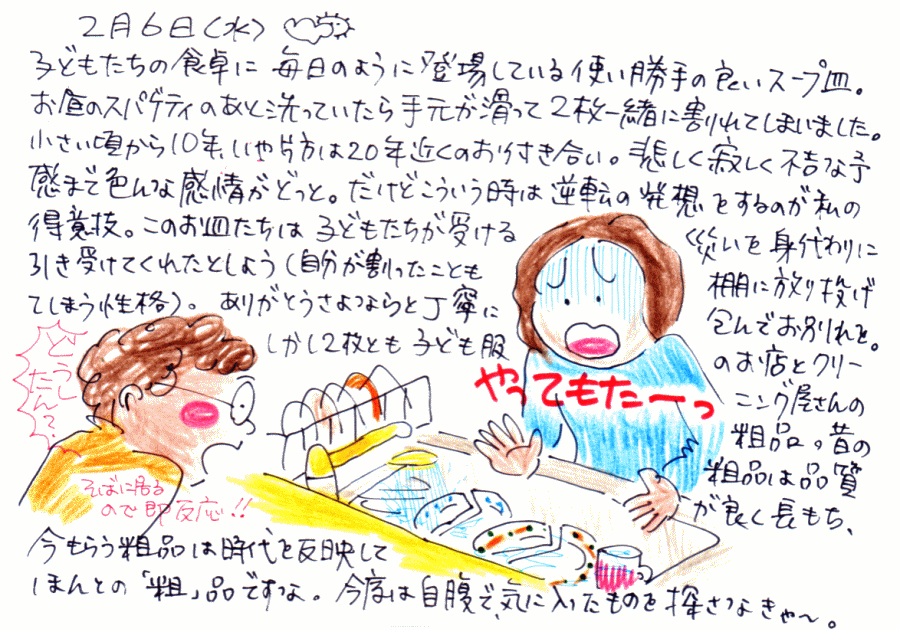 2月6日(水)
子どもたちの食卓に 毎日のように登場している使い勝手の良いスープ皿。
お昼のスパゲティのあと洗っていたら手元が滑って2枚一緒に割れてしまいました。
小さい頃から10年、いや片方は20年近くのお付き合い。悲しく寂しく不吉な予
感まで色んな感情がどっと。だけどこういう時は逆転の発想をするのが私の
得意技。このお皿たちは 子どもたちが受ける
災いを身代わりに
引き受けてくれたとしよう(自分が割ったことも
棚に放り投げ
てしまう性格)。ありがとうさよならと丁寧に
包んでお別れを。
しかし2枚とも 子ども服
のお店とクリー
ニング屋さんの
粗品。昔の
粗品は品質
が良く長もち、
今もらう粗品は時代を反映して
ほんとの「粗」品ですよ。今度は自腹で、気に入ったものを探さなきゃ〜。
どうし
たん?
そばに居る
ので即反応!!
やってもたーっ